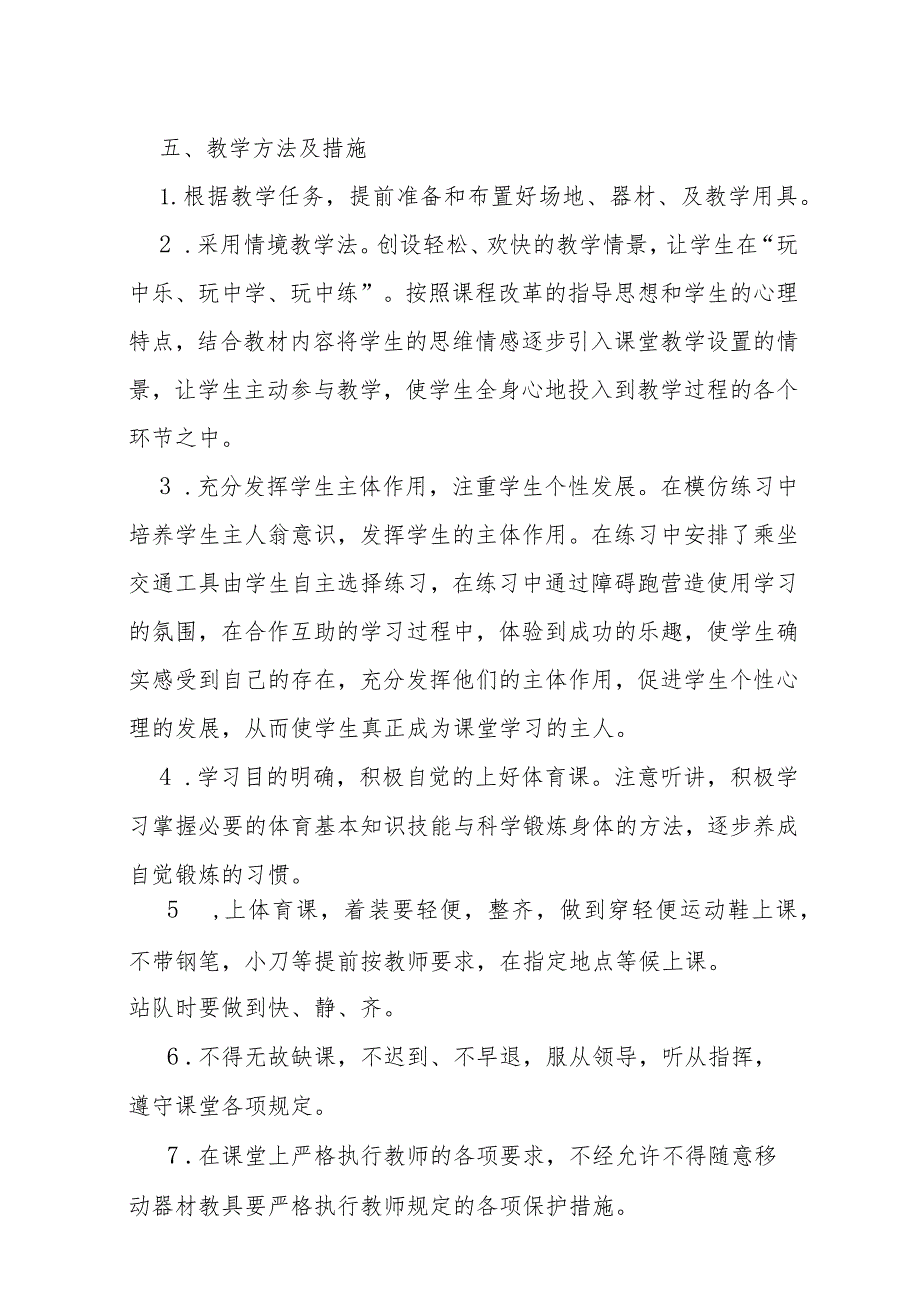 五、教学方法及措施
1.根据教学任务，提前准备和布置好场地、器材、及教学用具。
2.采用情境教学法。创设轻松、欢快的教学情景，让学生在“玩
中乐、玩中学、玩中练”。按照课程改革的指导思想和学生的心理
特点，结合教材内容将学生的思维情感逐步引入课堂教学设置的情
景，让学生主动参与教学，使学生全身心地投入到教学过程的各个
环节之中。
3.充分发挥学生主体作用，注重学生个性发展。在模仿练习中
培养学生主人翁意识，发挥学生的主体作用。在练习中安排了乘坐
交通工具由学生自主选择练习，在练习中通过障碍跑营造使用学习
的氛围，在合作互助的学习过程中，体验到成功的乐趣，使学生确
实感受到自己的存在，充分发挥他们的主体作用，促进学生个性心
理的发展，从而使学生真正成为课堂学习的主人。
4.学习目的明确，积极自觉的上好体育课。注意听讲，积极学
习掌握必要的体育基本知识技能与科学锻炼身体的方法，逐步养成
自觉锻炼的习惯。
5 ,上体育课，着装要轻便，整齐，做到穿轻便运动鞋上课，
不带钢笔，小刀等提前按教师要求，在指定地点等候上课。
站队时要做到快、静、齐。
6.不得无故缺课，不迟到、不早退，服从领导，听从指挥，
遵守课堂各项规定。
7.在课堂上严格执行教师的各项要求，不经允许不得随意移
动器材教具要严格执行教师规定的各项保护措施。